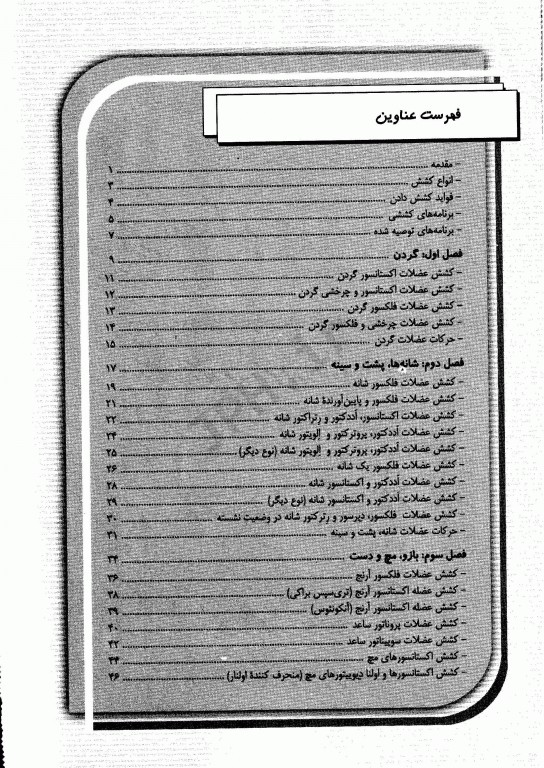 فهرست عناوین
- مقدمه ... ۱
- انواع کشش ... ۳
- فواید کشش دادن ... ۴
- برنامه‌های کششی ... ۵
- برنامه‌های توصیه شده ... ۷
فصل اول: گردن ... ۹
- کشش عضلات اکستانسور گردن ... ۱۱
- کشش عضلات اکستانسور و چرخشی گردن ... ۱۲
- کشش عضلات فلکسور گردن ... ۱۳
- کشش عضلات چرخشی و فلکسور گردن ... ۱۴
- حرکات عضلات گردن ... ۱۵
فصل دوم: شانه‌ها، پشت و سینه ... ۱۷
- کشش عضلات فلکسور شانه ... ۱۹
- کشش عضلات فلکسور و پایین‌آورندهٔ شانه ... ۲۱
- کشش عضلات اکستانسور، اَددکتور و رتراکتور شانه ... ۲۲
- کشش عضلات اَددکتور، پروترکتور و اِلویتور شانه ... ۲۴
- کشش عضلات اَددکتور، پروترکتور و اِلویتور شانه (نوع دیگر) ... ۲۵
- کشش عضلات فلکسور یک شانه ... ۲۶
- کشش عضلات اَددکتور و اکستانسور شانه ... ۲۸
- کشش عضلات اَددکتور و اکستانسور شانه (نوع دیگر) ... ۲۹
- کشش عضلات فلکسور، دپرسور و رترکتور شانه در وضعیت نشسته ... ۳۰
- حرکات عضلات شانه، پشت و سینه ... ۳۱
فصل سوم: بازو، مچ و دست ... ۳۴
- کشش عضلات فلکسور آرنج ... ۳۶
- کشش عضله اکستانسور آرنج (تری‌سپس براکی) ... ۳۸
- کشش عضله اکستانسور آرنج (آنکونئوس) ... ۳۹
- کشش عضلات پروناتور ساعد ... ۴۰
- کشش عضلات سوپیناتور ساعد ... ۴۲
- کشش اکستانسورهای مچ ... ۴۴
- کشش اکستانسورها و اولنا دیوییتورهای مچ (منحرف کنندهٔ اولنار) ... ۴۶